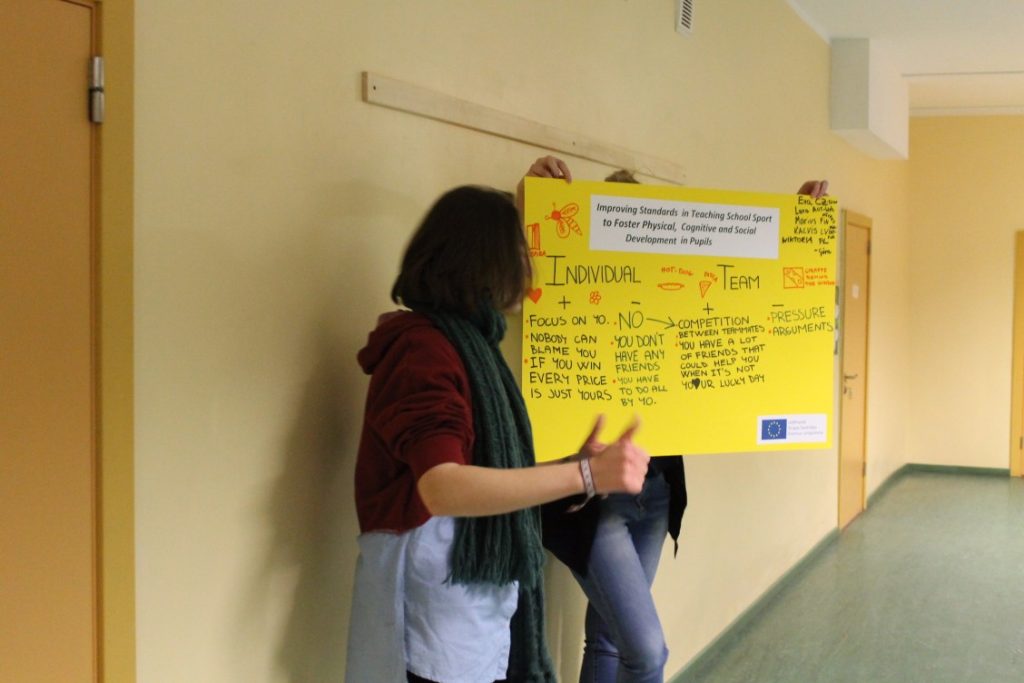 Improving Standards in Teaching School Sport
to Foster Physical, Cognitive and Social
Development in Pupils
INDIVIDUAL
+
-
FOCUS ON YO.
NOBODY CAN
BLAME YOU
IF YOU WIN
EVERY PRICE
IS JUST YOURS
NO
YOU DON'T
HAVE ANY
FRIENDS
YOU HAVE
TO DO ALL
BY YO.
HOT-DOG
TEAM
+
-
COMPETITION
BETWEEN TEAMMATES
YOU HAVE A LOT
OF FRIENDS THAT
COULD HELP YOU
WHEN IT'S NOT
YOUR LUCKY DAY
PRESSURE
ARGUMENTS
GIRAFFE
BEHIND
THE WINDOW